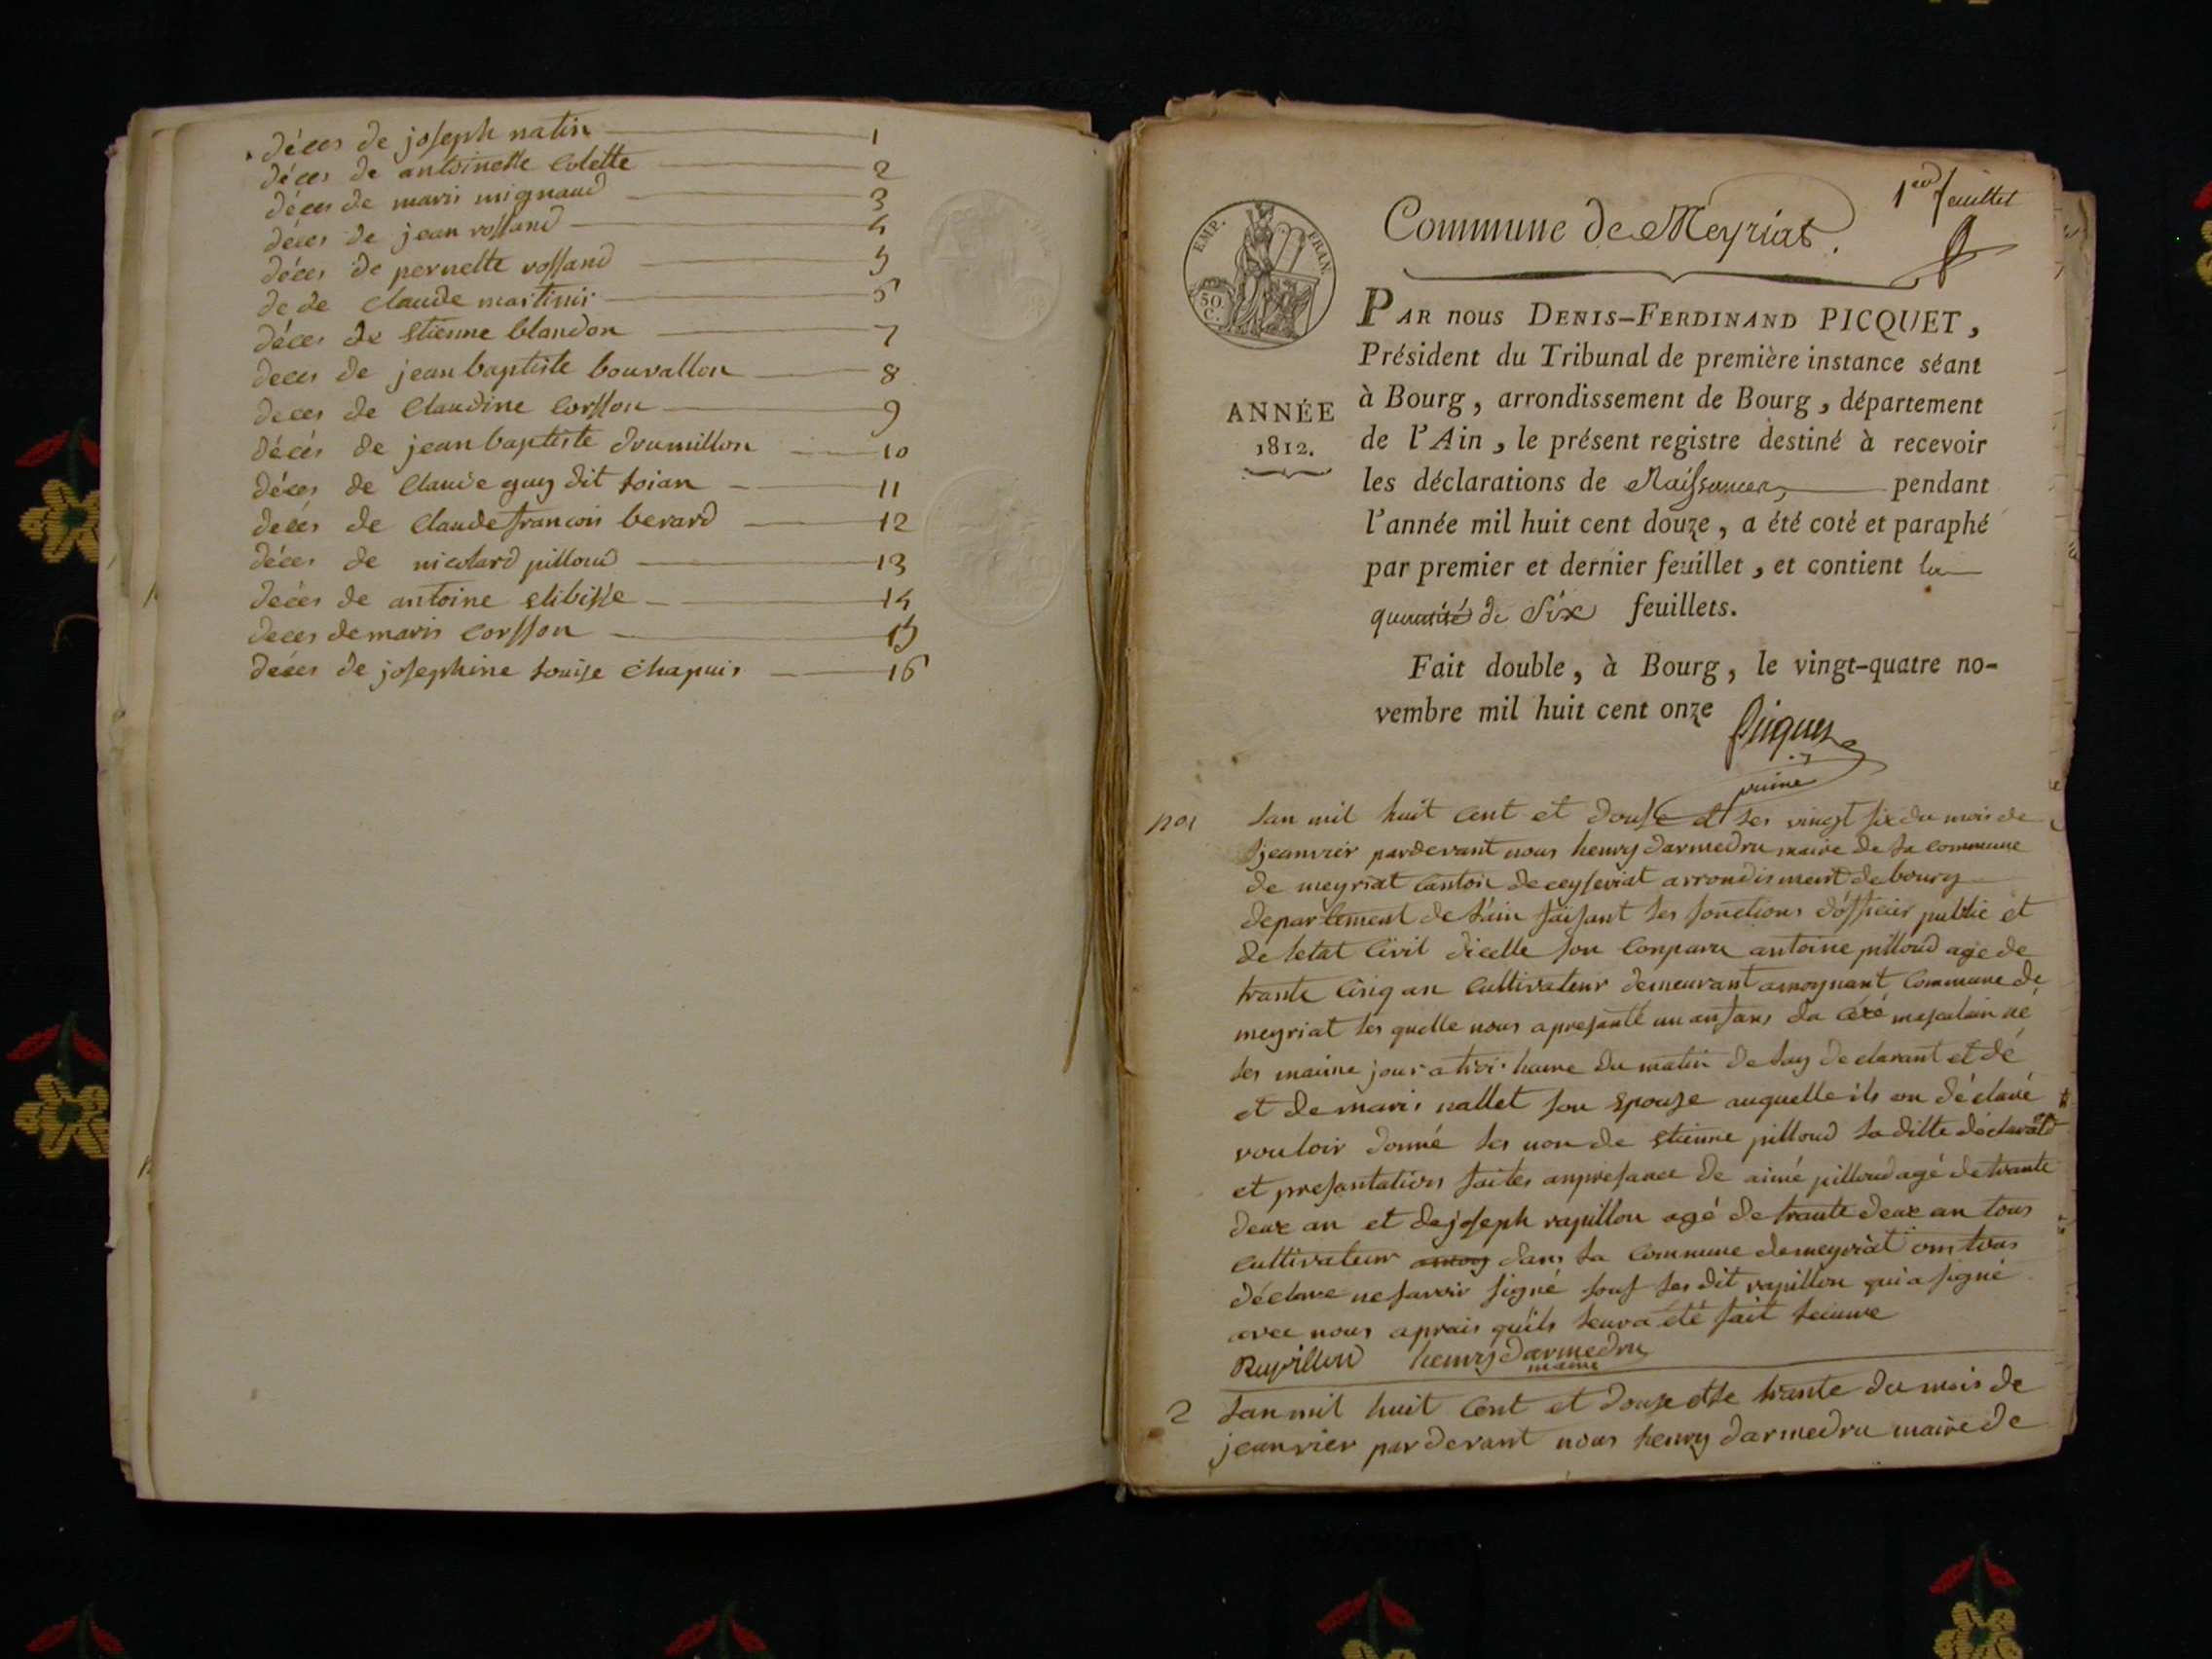 déces de joseph natin 1
déces de antoinette Colette 2
déces de maris mignaud 3
déces de jean rossand 4
déces de pernette rossand 5
de de Claude martinis 6
déces de Etienne blandon 7
deces de jean baptiste bouvallon 8
deces de Claudine Corsson 9
décés de jean baptiste drumillon 10
déces de Claude guy dit loian 11
deces de Claude francois berard 12
déces de nicolard pilloud 13
deces de antoine elibisse 14
deces de maris Corsson 15
deces de josephine louise Chapuis 16
1er feuillet
Commune de Meyriat.
EMP. FRAN.
50 C.
PAR nous DENIS-FERDINAND PICQUET,
Président du Tribunal de première instance séant
ANNÉE
1812.
à Bourg, arrondissement de Bourg, département
de l'Ain, le présent registre destiné à recevoir
les déclarations de Naissances, pendant
l'année mil huit cent douze, a été coté et paraphé
par premier et dernier feuillet, et contient la
quantité de Six feuillets.
Fait double, à Bourg, le vingt-quatre no-
vembre mil huit cent onze
Picquet
no 1 Lan mil huit Cent et douse et les vingt six du mois de
jeanvier pardevant nous henry darmedru maire de la commune
de meyriat Canton de ceyseriat arrondisment de bourg
departement de l'ain faisant les fonctions d'officier public et
de letat Civil dicelle son Conparu antoine pilloud age de
trante Cinq an Cultivateur demeurant amoynant Commune de
meyriat les quelle nous apresanté un anfans du cexé masculain né
les maime jour a troi heure du matin de luy declarant et dé
et de maris nallet son Epouse auquelle ils on déclaré
vouloir donné les non de Etienne pilloud la ditte déclaratd
et presantations faites anpresance de aimé pilloud agé de trante
deux an et de joseph rapillon agé de trante deux an tous
Cultivateur dans la Commune de meyriat om tous
déclare ne savoir signé souf les dit rapillon qui a signé
avec nous aprais quils leura été fait lecuure
Rapillon henry darmedru
maire
2 Lan mil huit Cent et douse et le trante du mois de
jeanvier par devant nous henry darmedru maire de